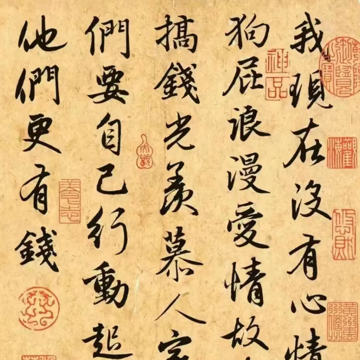 我現在沒有心情
狗屁浪漫愛情故
搞錢光羨慕人家
們要自己行動起
他們更有錢
神品